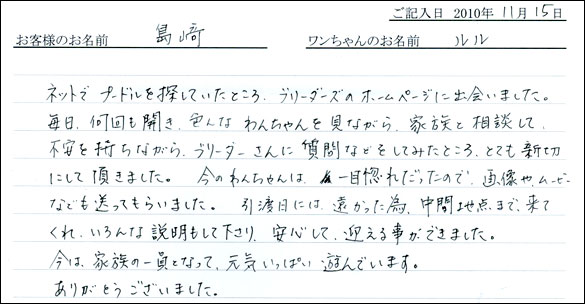 ご記入日 2010年 11月 15日
お客様のお名前 島﨑 ワンちゃんのお名前 ルル
ネットで プードルを探していたところ、ブリーダーズのホームページに出会いました。
毎日、何回も開き、色んな わんちゃんを見ながら、家族と相談して、
不安を持ちながら、ブリーダーさんに質問などをしてみたところ、とても親切
にして頂きました。 今のわんちゃんは、一目惚れだったので、画像や、ムービー
なども送ってもらいました。 引渡日には、遠かった為、中間地点まで来て
くれ、いろんな説明もして下さり、安心して、迎える事ができました。
今は、家族の一員となって、元気いっぱい 遊んでいます。
ありがとうございました。